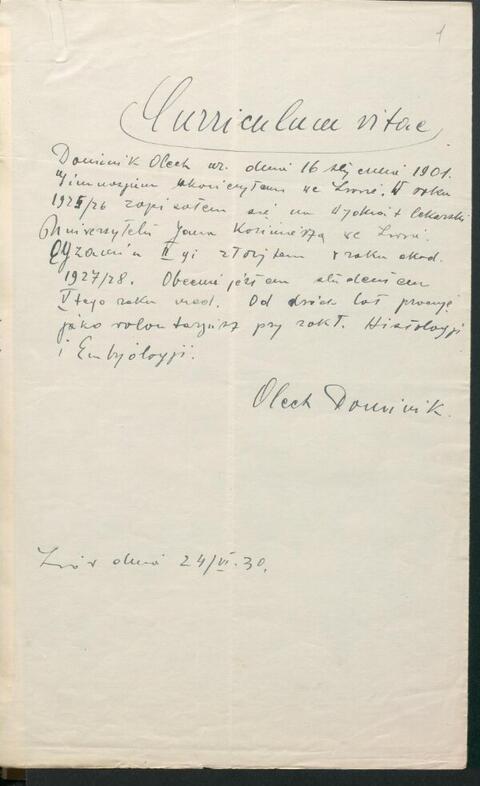 1
Curriculum vitae
Dominik Olech ur. dnia 16 stycznia 1901.
Gimnazjum ukończyłem we Lwowie. W roku
1925/26 zapisałem się na Wydział lekarski
Uniwersytetu Jana Kazimierza we Lwowie.
Egzamin II-gi złożyłem w roku akad.
1927/28. Obecnie jestem studentem
V-tego roku med. Od dwóch lat pracuję
jako wolontarjusz przy zakł. Histologji
i Embrjologji.
Olech Dominik.
Lwów dnia 24/VI. 30.